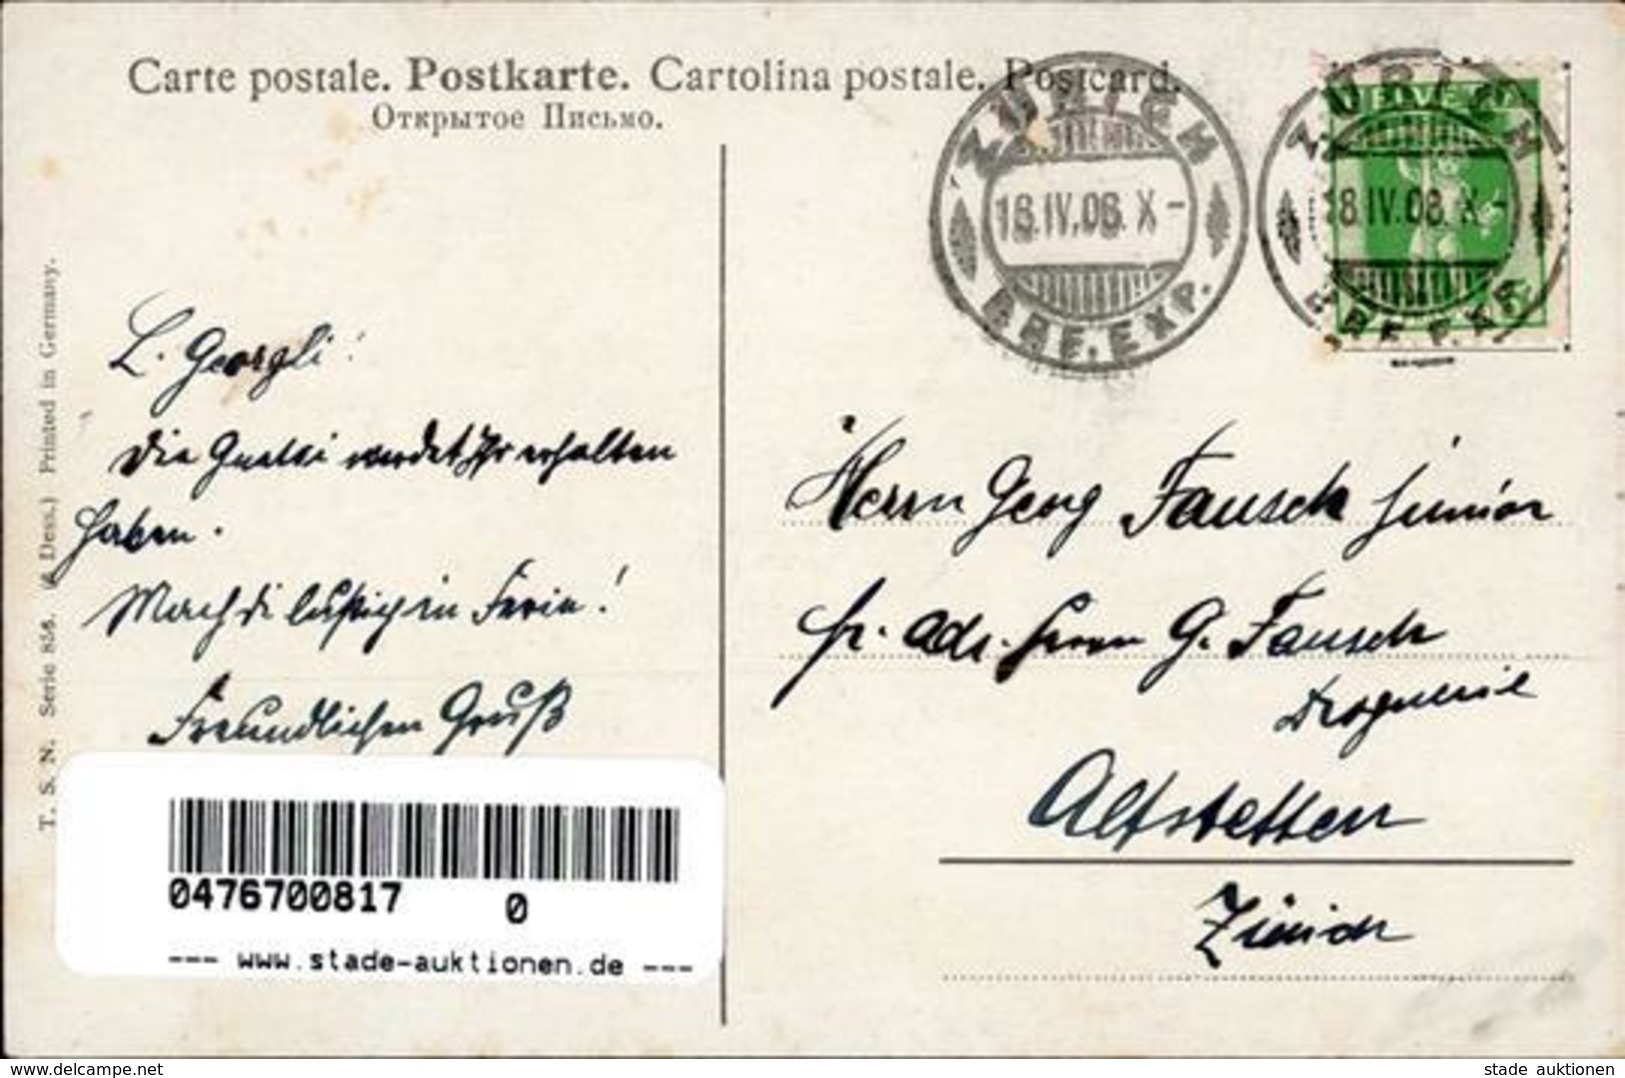 Carte postale. Postkarte. Cartolina postale. Postcard.
Открытое Письмо.
ZÜRICH
18.IV.08. X-
BRF.EXP.
ZÜRICH
18.IV.08. X-
BRF.EXP.
HELVETIA
T. S. N. Serie 856. (6 Dess.) Printed in Germany.
L. Georgli!
Die Guetsi werdet Ihr erhalten
haben.
Mach di lustig in Ferie!
Freundlichen Gruß
Herrn Georg Fausch junior
pr. Adr. Herrn G. Fausch
Droguerie
Altstetten
Zürich
0476700817 0
--- www.stade-auktionen.de ---
delcampe.net
stade auktionen